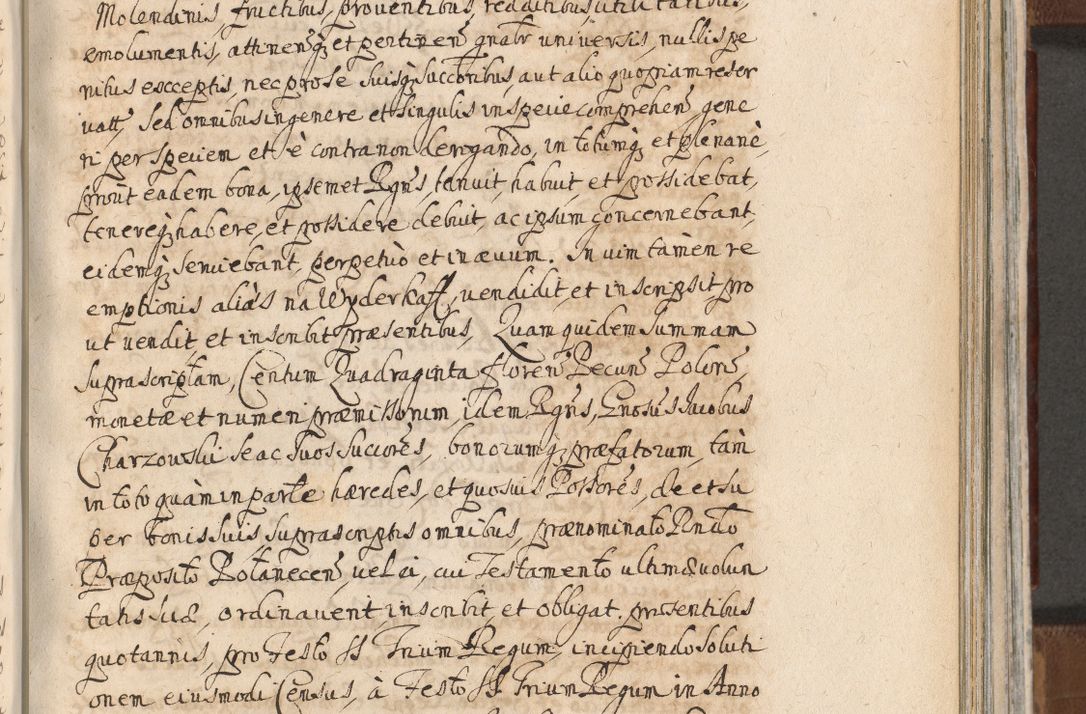 Molendinis, fructibus, proventibus, redditibus, utilitatibus,
emolumentis, attinen̄q; et pertinen̄ gnalr universis, nullis pe
nitus escceptis, nec pro se suisq; succoribus, aut alio quopiam reser
vatt, sed omnibus in genere et singulis in specie comprehen̄, gene
ri per speciem et è contra non derogando, in totumq; et plenariè,
prout eadem bona, ipsemet Rgn̄s, tenuit, habuit, et possidebat,
tenereq; habere, et possidere debuit, ac ipsum concernebant,
eidemq; serviebant, perpetuò et in ævum. In vim tamen re
emptionis aliàs na Wyderkaff, vendidit, et inscripsit pro
ut vendit, et inscribit præsentibus, Quam quidem summam
suprascriptam, Centum Quadraginta floren̄ Pecun̄ Polon̄,
monetæ et numeri præmissorum, idem Rgn̄s, Gnosus Jacobus
Charzowski se ac suos succores, bonorumq; præfatorum, tàm
in toto quàm in parte hæredes, et quosvis Possores, de et su
per bonis suis, suprascriptis omnibus, prænominato Rndo
Præposito Potanecen̄, vel ei, cui Testamento ultimæ volun
tatis suæ, ordinaverit, inscribit, et obligat. præsentibus
quotannis, pro Festo SS Trium Regum, incipiendo soluti
onem eiusmodi Census, à Festo SS Trium Regum in Anno